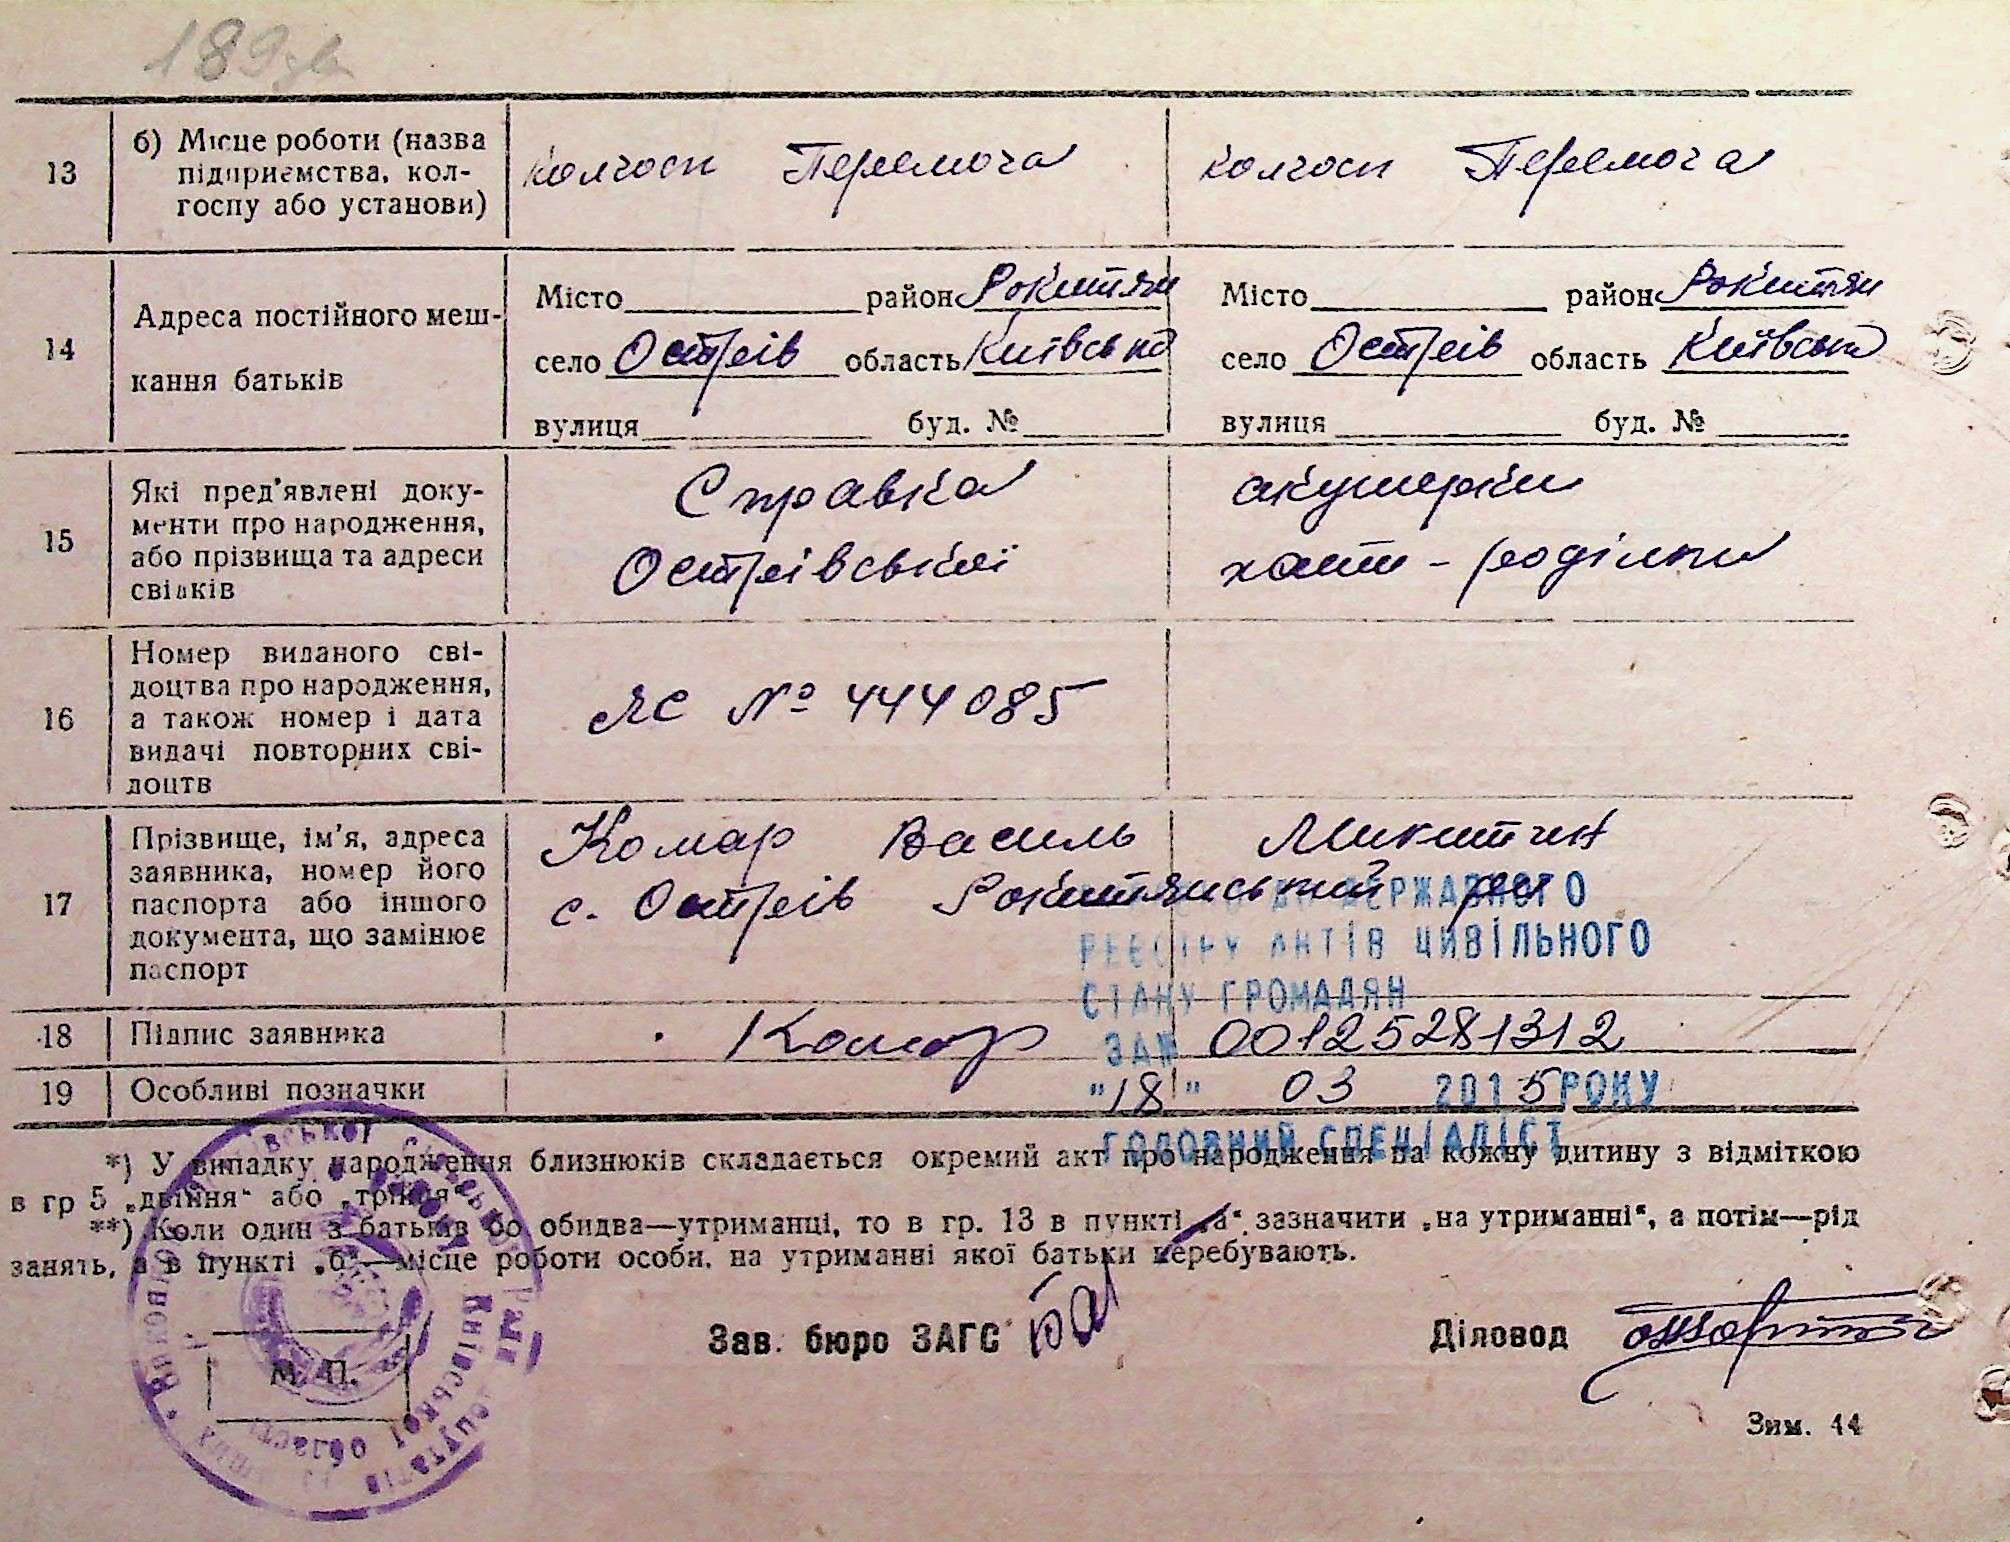 189 зв
13
б) Місце роботи (назва
підприємства, кол-
госпу або установи)
колгосп Перемога
колгосп Перемога
14
Адреса постійного меш-
кання батьків
Місто район Рокитян
село Острів область Київська
вулиця буд. №
Місто район Рокитян
село Острів область Київська
вулиця буд. №
15
Які пред'явлені доку-
менти про народження,
або прізвища та адреси
свідків
Справка акушерки
Острівської хати-родільні
16
Номер виданого сві-
доцтва про народження,
а також номер і дата
видачі повторних сві-
доцтв
ЯС № 444085
17
Прізвище, ім'я, адреса
заявника, номер його
паспорта або іншого
документа, що замінює
паспорт
Комар Василь Микитич
с. Острів Рокитянський р-н
ДЕРЖАВНОГО
РЕЄСТРУ АКТІВ ЦИВІЛЬНОГО
СТАНУ ГРОМАДЯН
ЗА № 00125281312
"18" 03 2015 РОКУ
ГОЛОВНИЙ СПЕЦІАЛІСТ
18
Підпис заявника
Комар
19
Особливі позначки
*) У випадку народження близнюків складається окремий акт про народження на кожну дитину з відміткою
в гр 5 „двійня“ або „трійня“
**) Коли один з батьків бо обидва—утриманці, то в гр. 13 в пункті „а“ зазначити „на утриманні“, а потім—рід
занять, а в пункті „б“—місце роботи особи, на утриманні якої батьки перебувають.
Зав. бюро ЗАГС
Діловод
М. П.
Київської області
Зим. 44